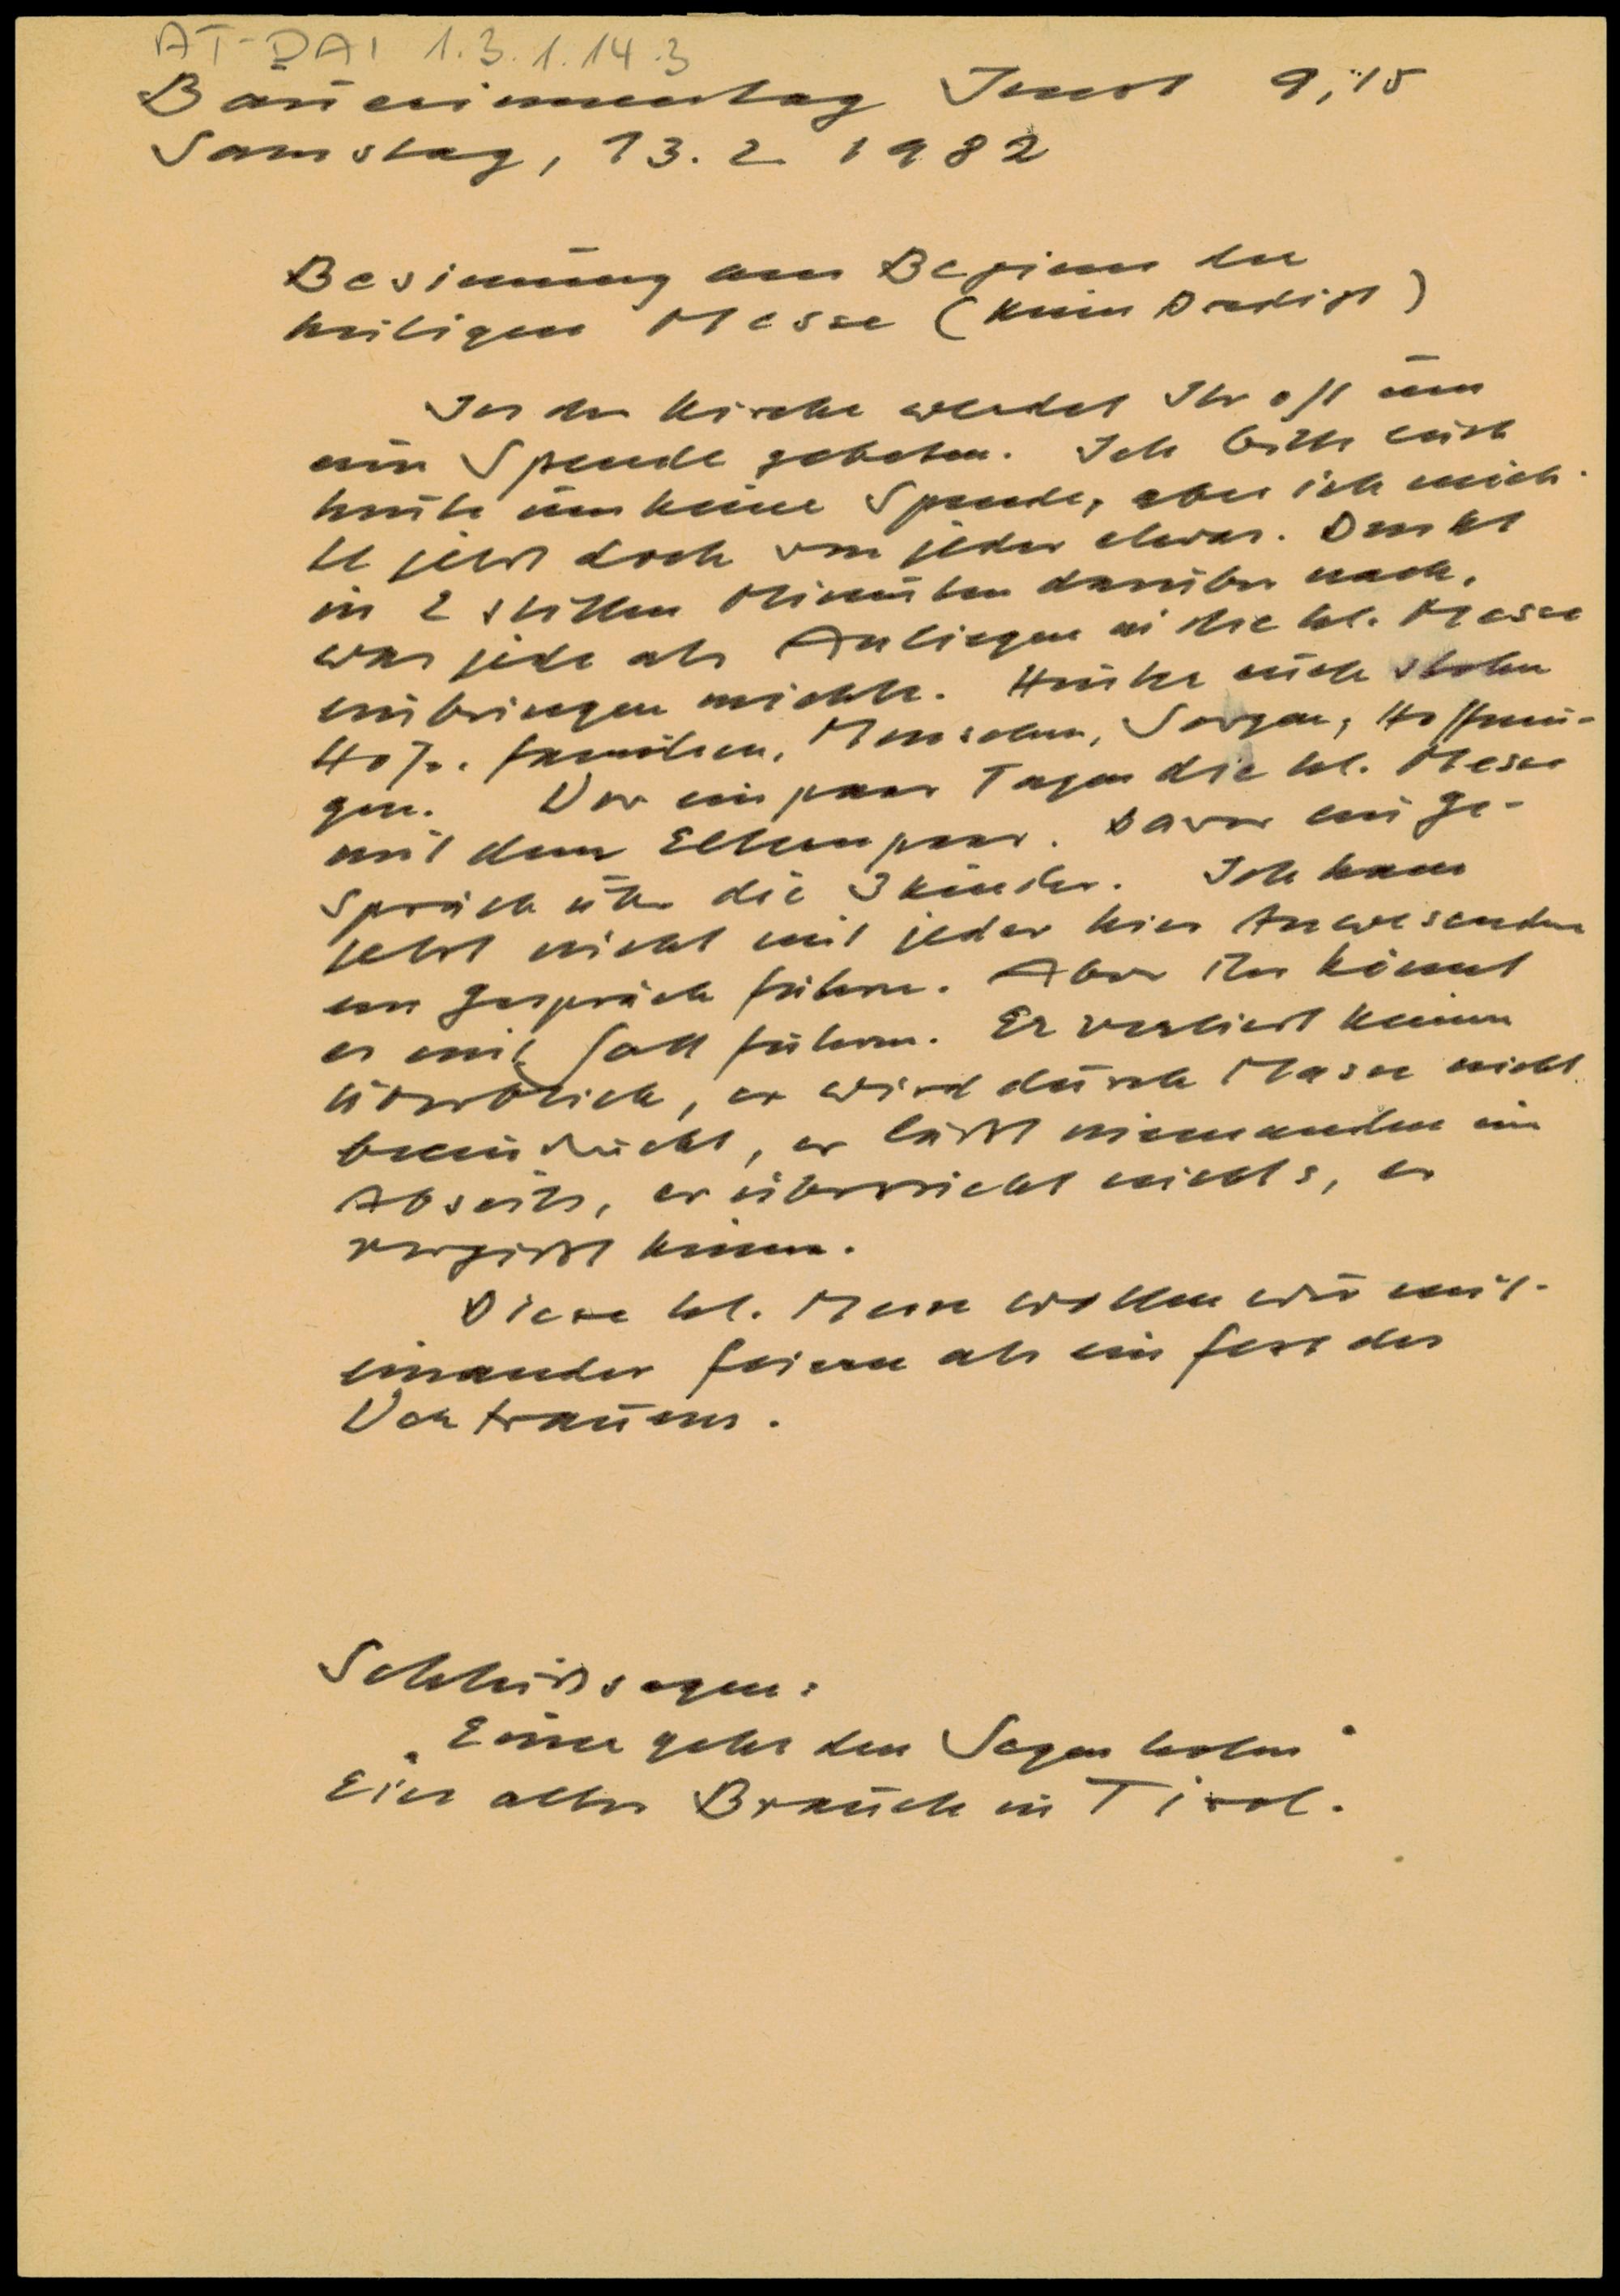 AT-DAI 1.3.1.14.3
Bäuerinnentag Imst 9,15
Samstag, 13. 2. 1982
Besinnung am Beginn der
heiligen Messe (keine Predigt)
In der Kirche werdet Ihr oft um
eine Spende gebeten. Ich bitte euch
heute um keine Spende, aber ich möch-
te jetzt doch von jeder etwas. Denkt
in 2 stillen Minuten darüber nach,
was jede als Anliegen in die hl. Messe
einbringen möchte. Hinter euch stehen
Höfe, Familien, Menschen, Sorgen, Hoffnun-
gen. Vor ein paar Tagen die hl. Messe
mit dem Elternpaar. Davor ein Ge-
spräch über die 3 Kinder. Ich kann
jetzt nicht mit jeder hier Anwesenden
ein Gespräch führen. Aber ihr könnt
es mit Gott führen. Er verliert keinen
Überblick, er wird durch Masse nicht
beeindruckt, er läßt niemanden im
Abseits, er übersieht nichts, er
vergißt keinen.
Diese hl. Messe wollen wir mit-
einander feiern als ein Fest des
Vertrauens.
Schlußsegen:
"Einer geht den Segen holen"
Ein alter Brauch in Tirol.